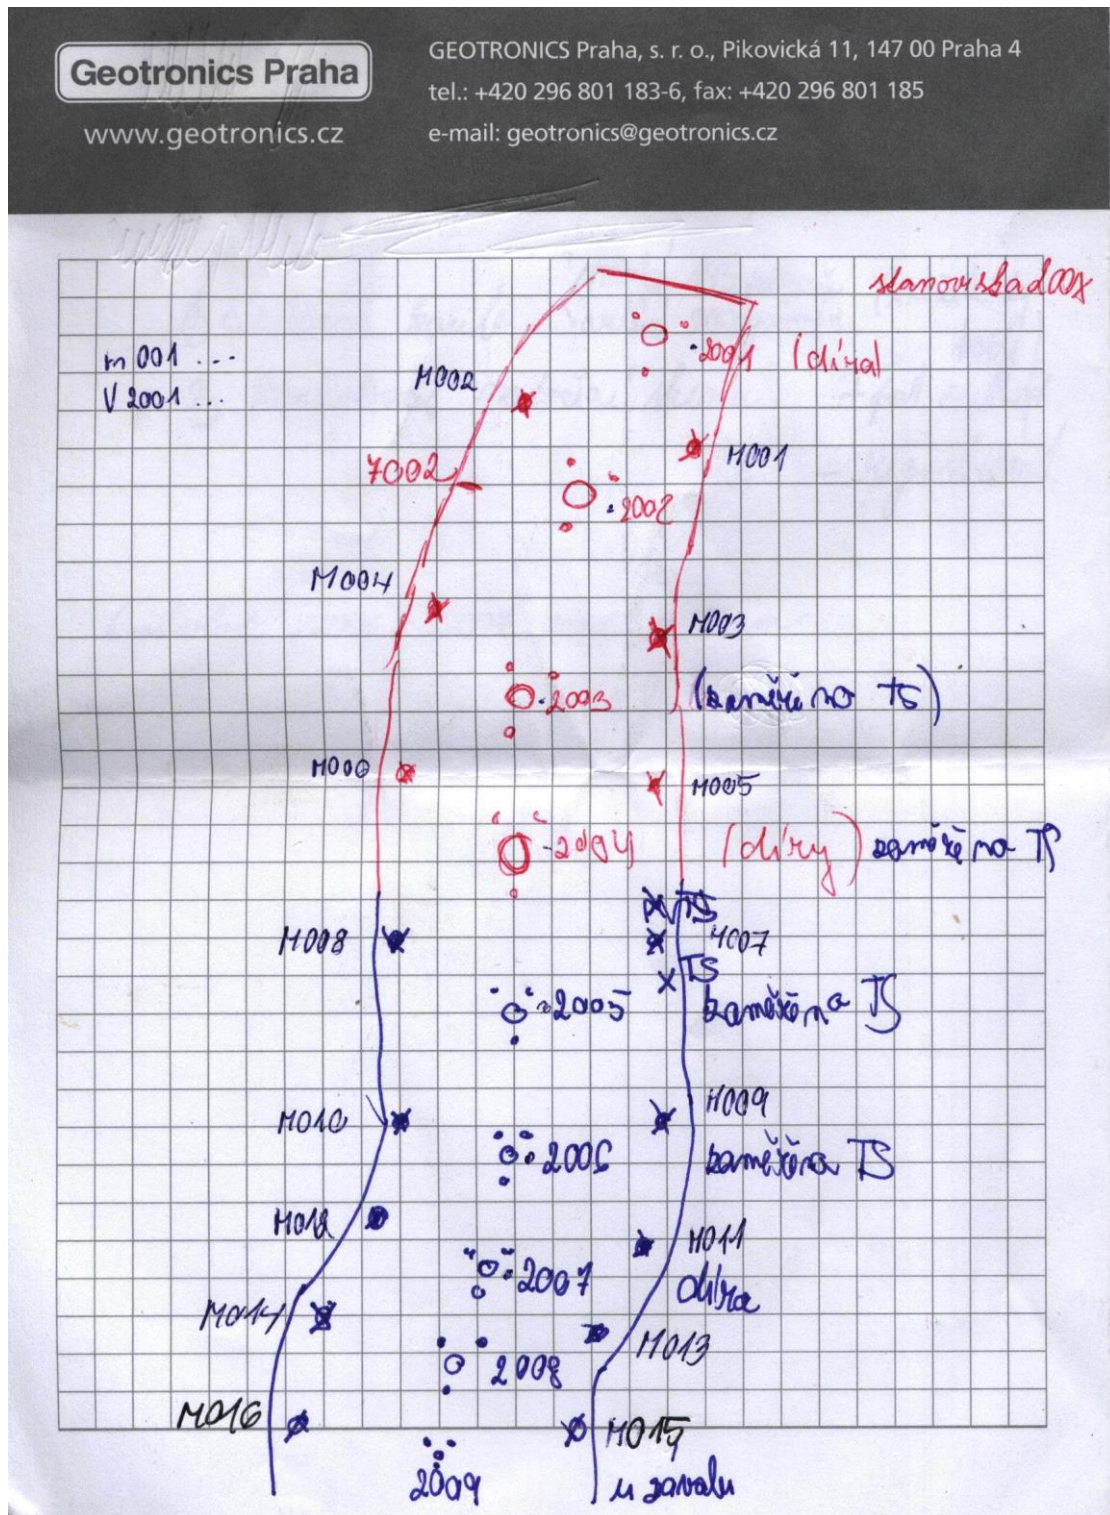 Geotronics Praha
www.geotronics.cz
GEOTRONICS Praha, s. r. o., Pikovická 11, 147 00 Praha 4
tel.: +420 296 801 183-6, fax: +420 296 801 185
e-mail: geotronics@geotronics.cz
stanoviska 200X
m 001 ...
V 2001 ...
2001 (díra)
M002
M001
7002
2002
M004
M003
2003 (zaměřeno TS)
M006
M005
2004 (díry) zaměřeno TS
TS
M008
M007
TS
2005 zaměřeno TS
M009
M010
2006 zaměřeno TS
M012
M011
2007 díra
M014
M013
2008
M016
M015
2009 u závalu